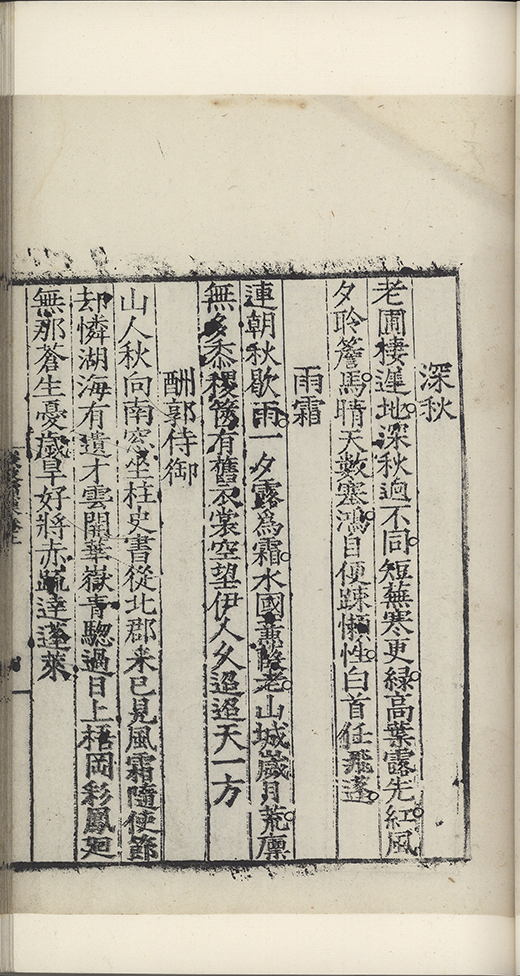 深秋
老圃棲遲地深秋迥不同短蕪寒更綠高葉露先紅風
夕聆簷馬晴天數寒鴻自便踈懶性白首任飛蓬
雨霜
連朝秋歇雨一夕露爲霜水國蕙殘老山城歲月荒廪
無多黍稷篋有舊衣裳空望伊人久迢迢天一方
酬郭侍御
山人秋向南窓坐柱史書從北郡来已見風霜隨使節
却憐湖海有遺才雲開華嶽青驄過日上梧岡彩鳳廻
無那蒼生憂歲旱好將赤䟽達蓬萊